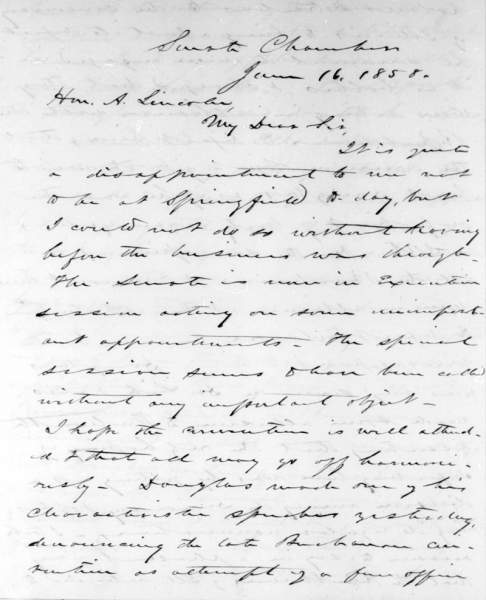 Senate Chamber
June 16, 1858.
Hon. A. Lincoln,
My Dear Sir,
It is quite
a disappointment to me not
to be at Springfield to day, but
I could not do so without leaving
before the business was through-
The Senate is now in Executive
session acting on some unimport-
ant appointments- The special
session seems to have been called
without any important object-
I hope the convention is well attend-
ed & that all may go off harmoni-
ously- Douglas made one of his
characteristic speeches yesterday,
denouncing the late Buchanan con-
vention as attempt of a few office